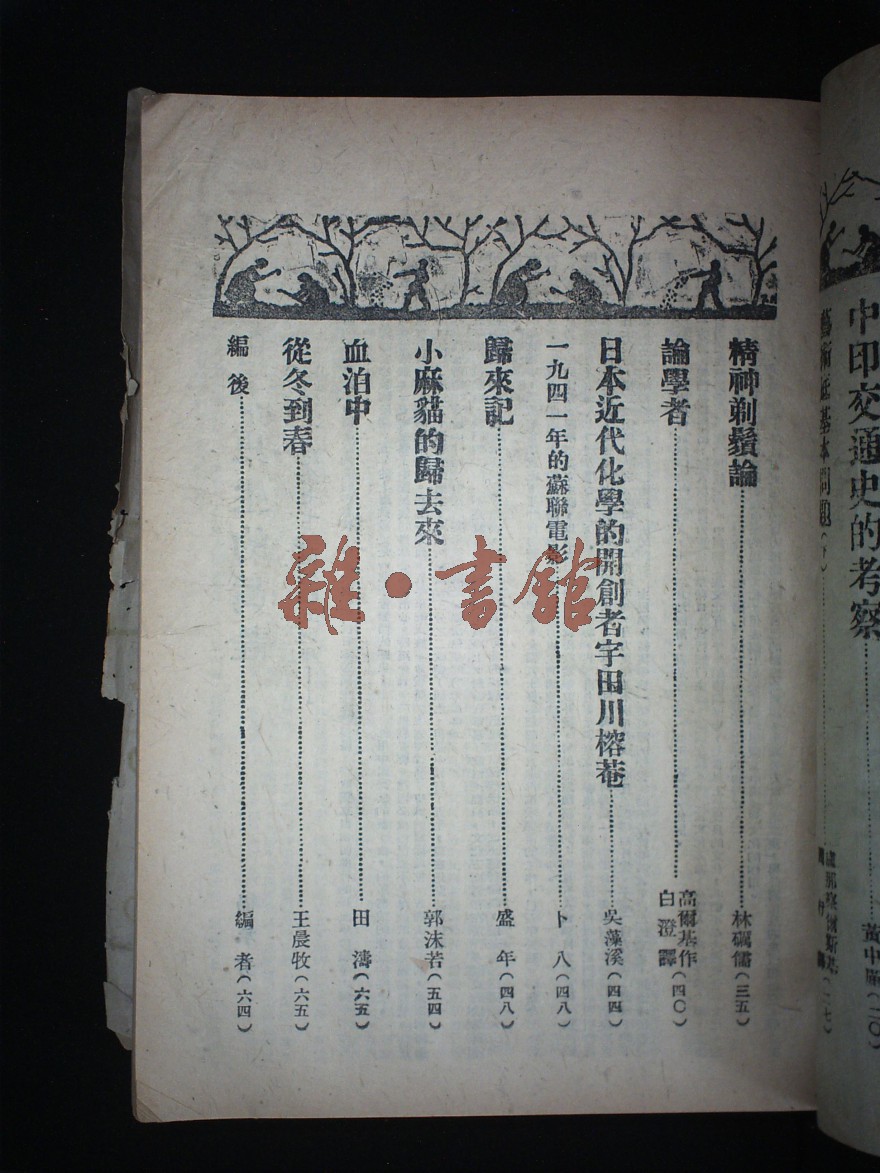 中印交通史的考察……黃中廑（二〇）
藝術底基本問題（下）
精神剃鬚論……林礪儒（三五）
論學者……高爾基作 白澄譯（四〇）
日本近代化學的開創者宇田川榕菴……吳藻溪（四四）
一九四一年的蘇聯電影……卜八（四八）
歸來記……盛年（四八）
小麻貓的歸去來……郭沫若（五四）
血泊中……田濤（六五）
從冬到春……王晨牧（六五）
編後……編者（六四）
雜·書館